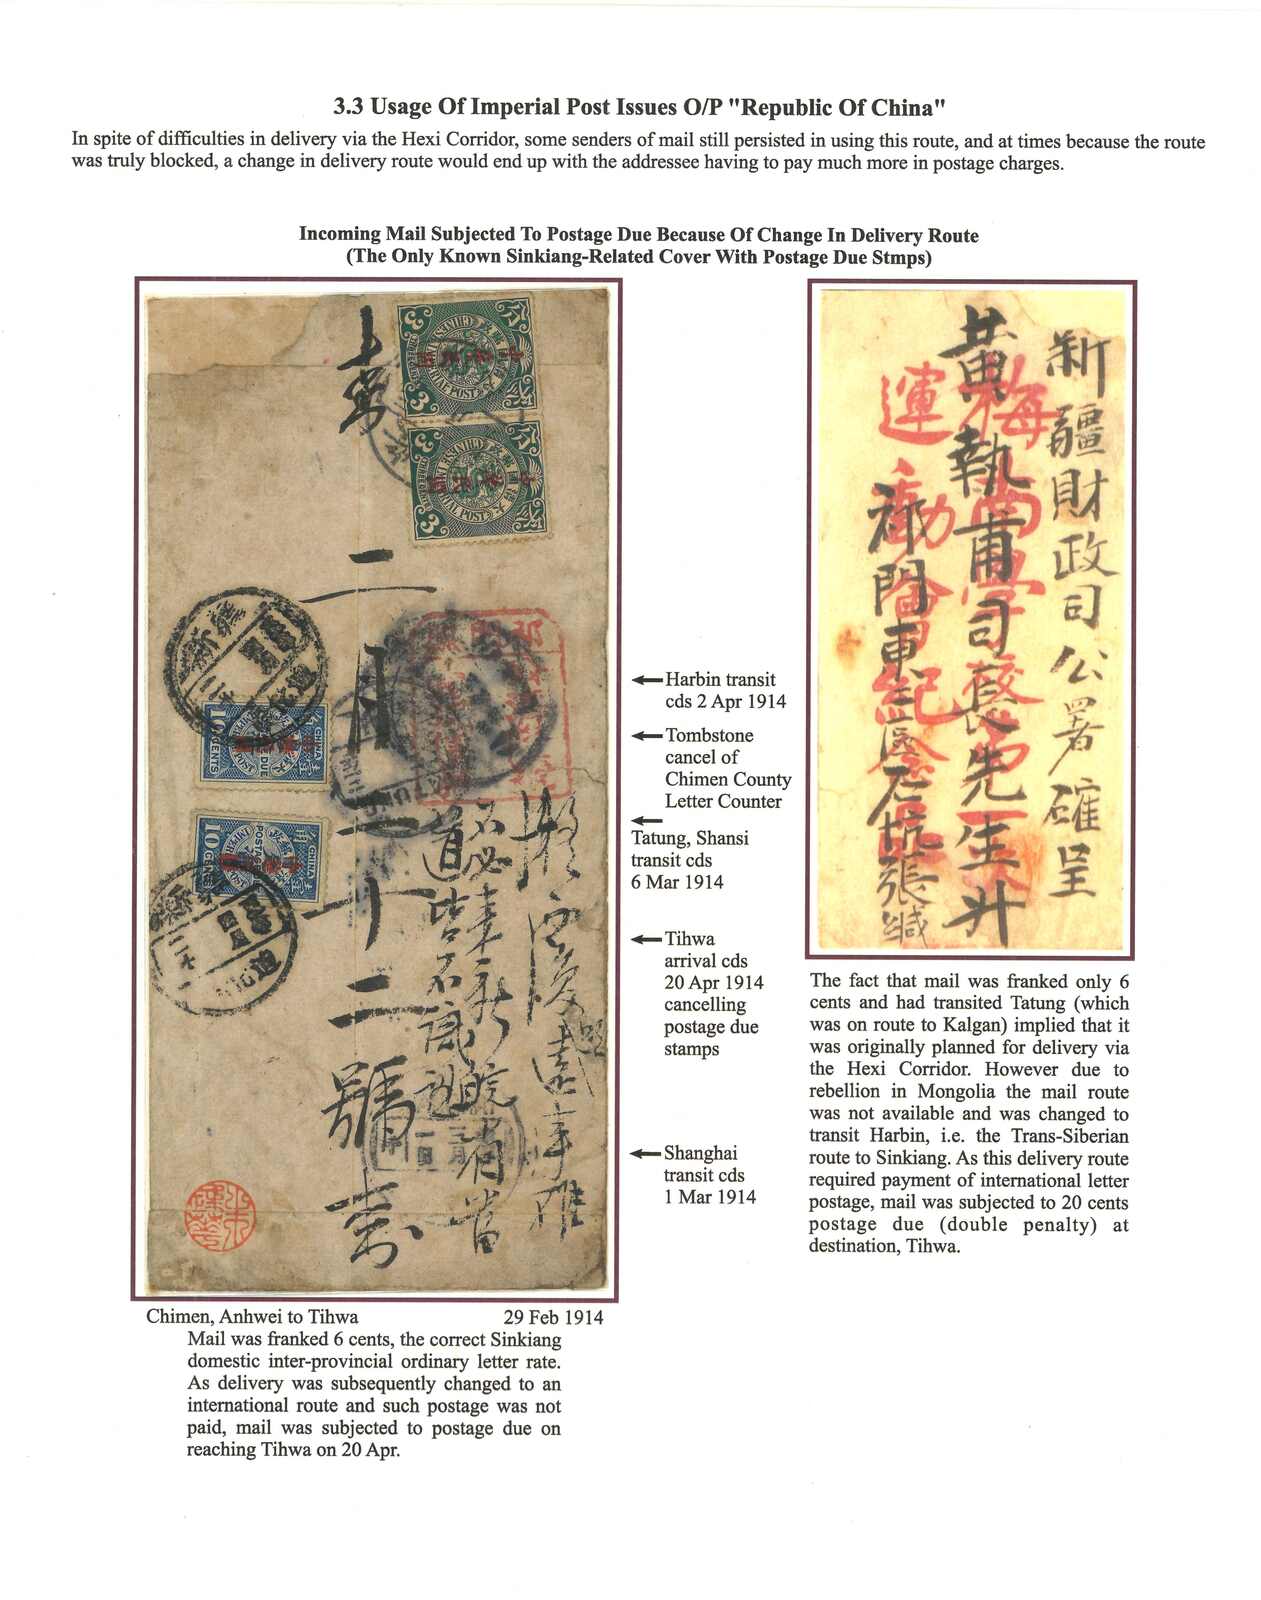 3.3 Usage Of Imperial Post Issues O/P "Republic Of China"
In spite of difficulties in delivery via the Hexi Corridor, some senders of mail still persisted in using this route, and at times because the route
was truly blocked, a change in delivery route would end up with the addressee having to pay much more in postage charges.
Incoming Mail Subjected To Postage Due Because Of Change In Delivery Route
(The Only Known Sinkiang-Related Cover With Postage Due Stmps)
二月二十二號
新疆財政司公署確呈
黃執甫司長先生升
祁門東三區石坑張緘
梅
運動會紀念
Harbin transit
cds 2 Apr 1914
Tombstone
cancel of
Chimen County
Letter Counter
Tatung, Shansi
transit cds
6 Mar 1914
Tihwa
arrival cds
20 Apr 1914
cancelling
postage due
stamps
Shanghai
transit cds
1 Mar 1914
The fact that mail was franked only 6
cents and had transited Tatung (which
was on route to Kalgan) implied that it
was originally planned for delivery via
the Hexi Corridor. However due to
rebellion in Mongolia the mail route
was not available and was changed to
transit Harbin, i.e. the Trans-Siberian
route to Sinkiang. As this delivery route
required payment of international letter
postage, mail was subjected to 20 cents
postage due (double penalty) at
destination, Tihwa.
Chimen, Anhwei to Tihwa 29 Feb 1914
Mail was franked 6 cents, the correct Sinkiang
domestic inter-provincial ordinary letter rate.
As delivery was subsequently changed to an
international route and such postage was not
paid, mail was subjected to postage due on
reaching Tihwa on 20 Apr.